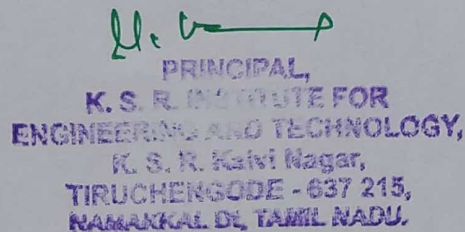 PRINCIPAL,
K. S. R. INSTITUTE FOR
ENGINEERING AND TECHNOLOGY,
K. S. R. Kalvi Nagar,
TIRUCHENGODE - 637 215,
NAMAKKAL Dt, TAMIL NADU.